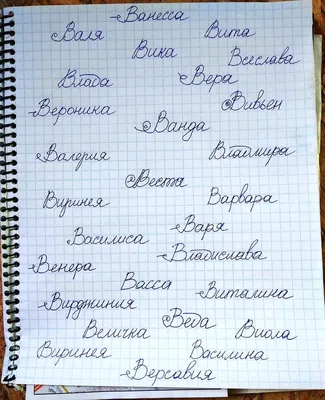 Ванесса
Валя Вита
Вика Всеслава
Влада Вера
Вероника Вивьен
Ванда
Валерия Владмира
Веста
Виринея Варвара
Василиса Варя
Венера Владислава
Васса
Вирджиния Виталина
Веда
Величка Виола
Виринея Василина
Версавия